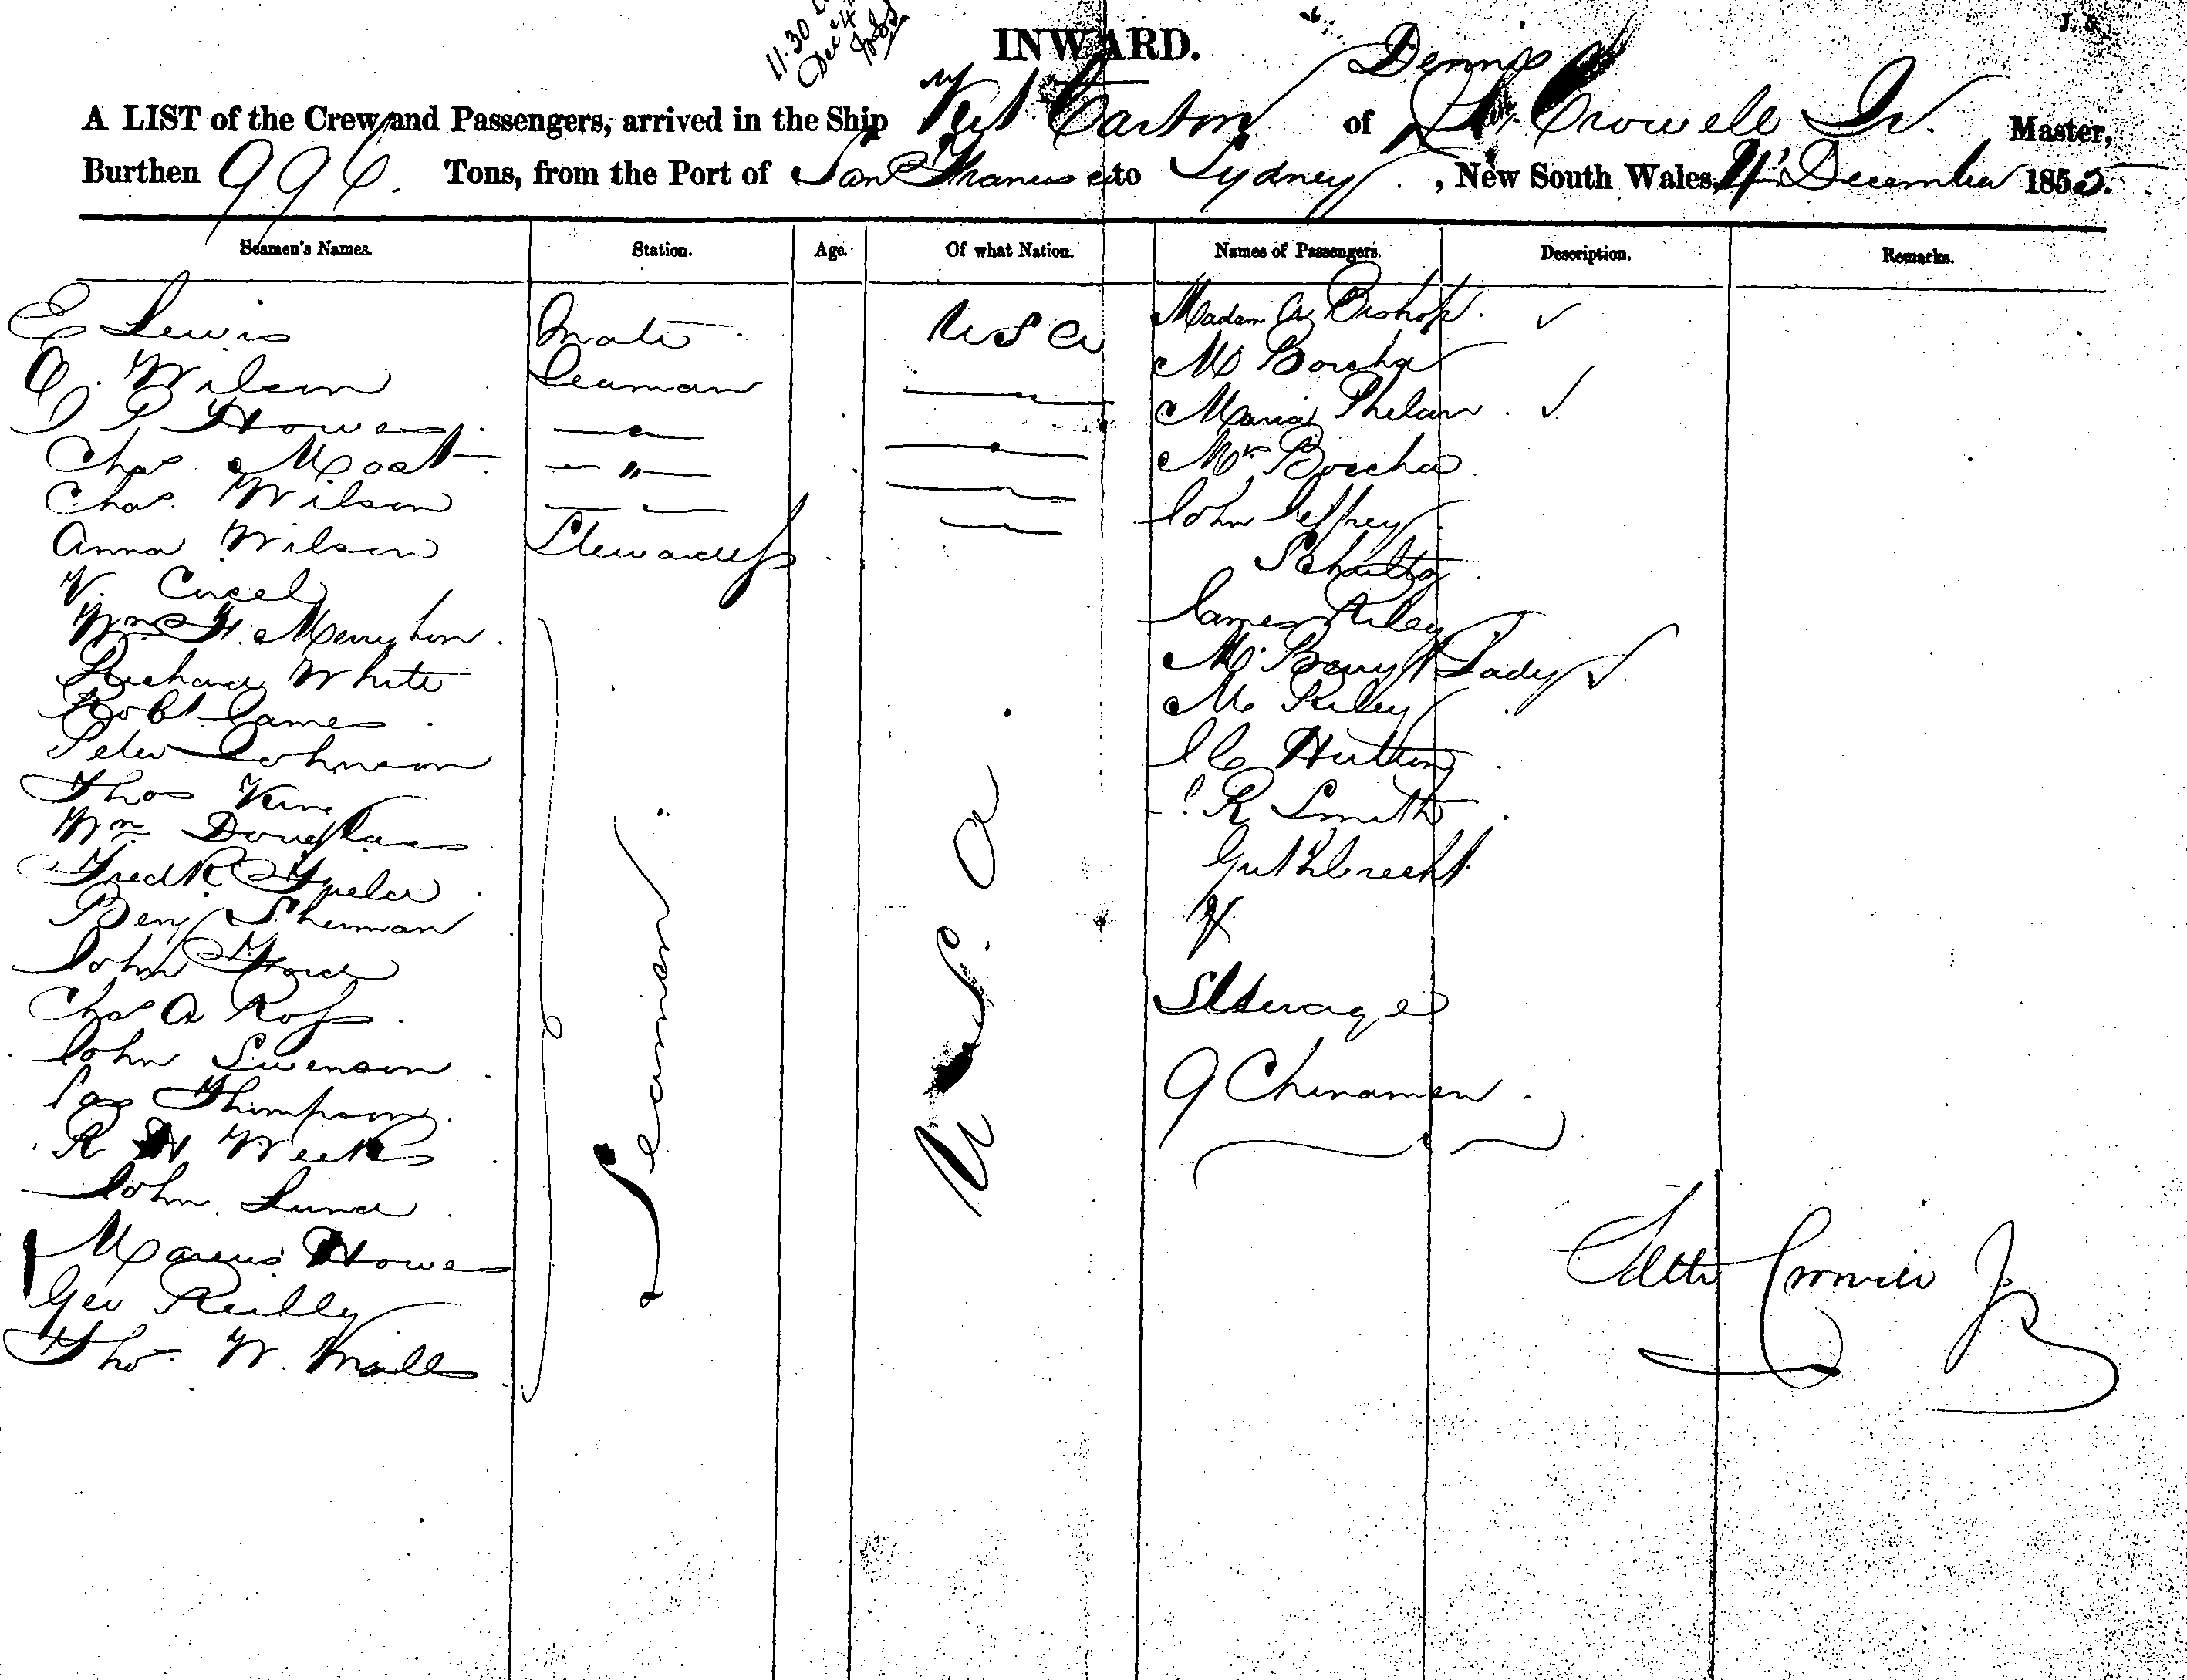 11.30
Dec 4
INWARD.
A LIST of the Crew and Passengers, arrived in the Ship Kit Carson of Dennis Crowell Jr. Master,
Burthen 996. Tons, from the Port of San Francisco to Sydney, New South Wales, 4 December 1855.
Seamen's Names. Station. Age. Of what Nation. Names of Passengers. Description. Remarks.
E Lewis Mate U S A Madam A Bishop. ✓
Wilson Seaman M Bocsha
P Howes Maria Phelan. ✓
Chas Mr Bocsha
Chas. Wilson John Jeffrey
Anna Wilson Stewardess Schultz
V. James Riley
Wm H. Mr Barry & Lady ✓
Richard White M Riley
Robt James J C Hutton
Peter Johnson R Smith
Thos Guthbrecht
Wm Douglass
Fredk
Benj Sherman Steerage
John Ford 9 Chinamen.
Chas A Ross
John Swenson
Jas Thompson
R H Weeks
John Lund
Marcus Howes
Geo Reilly
Tho W.
Seaman
U S. A
Crowell Jr